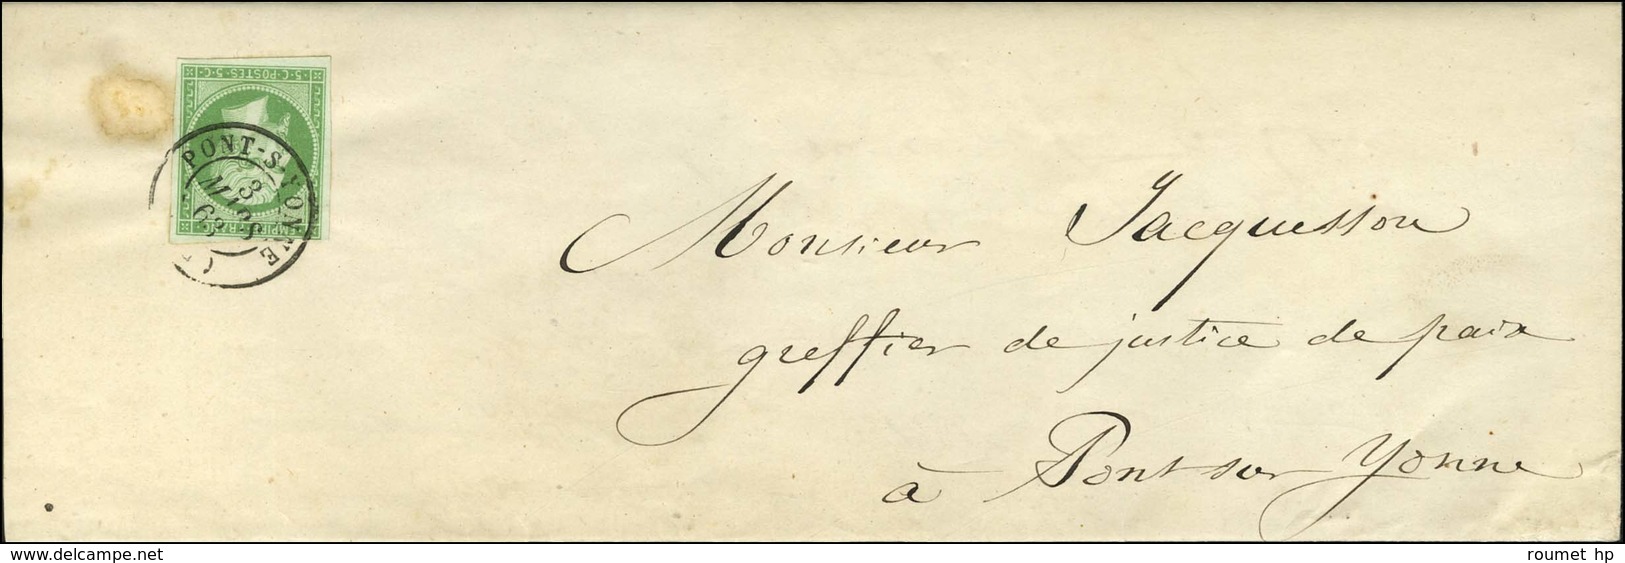 5·C·POSTES·5·C·
EMPIRE FRANC
PONT-S-YONNE
3
MARS
63
Monsieur Jacquesson
greffier de justice de paix
à Pont sur Yonne
www.delcampe.net
roumet hp